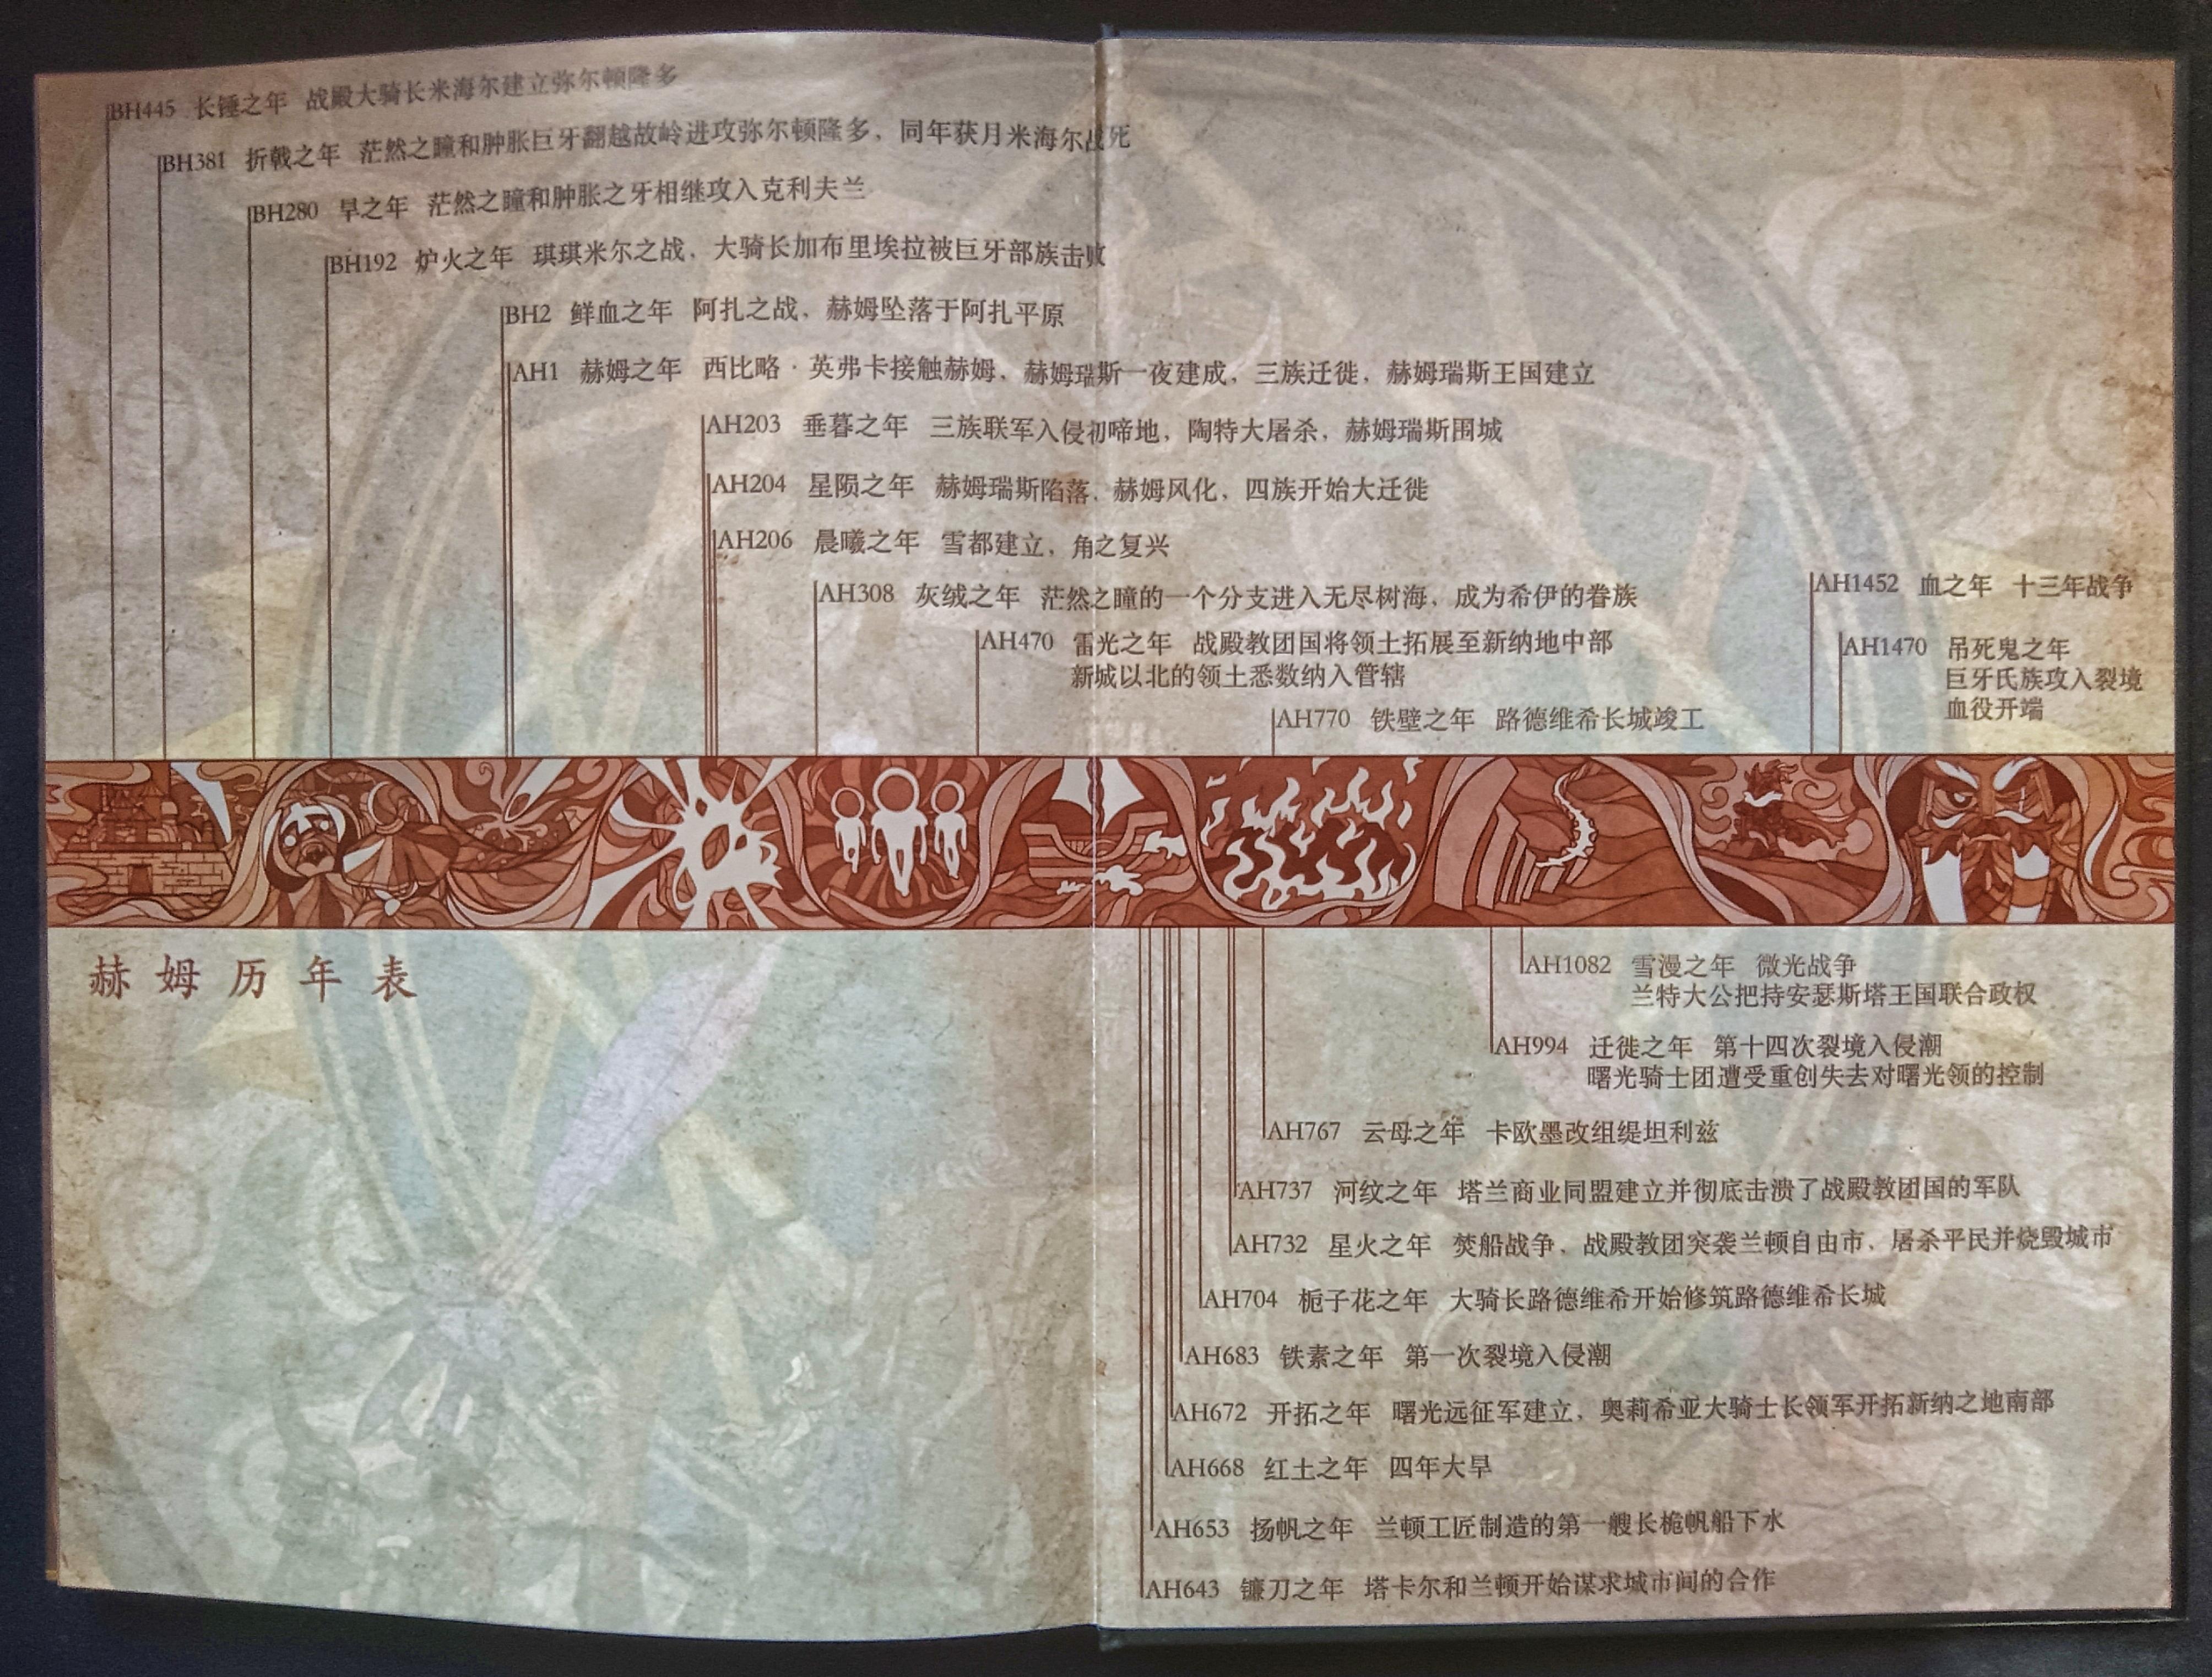 BH445 长锤之年 战殿大骑长米海尔建立弥尔顿隆多
BH381 折戟之年 茫然之瞳和肿胀巨牙翻越故岭进攻弥尔顿隆多，同年获月米海尔战死
BH280 旱之年 茫然之瞳和肿胀之牙相继攻入克利夫兰
BH192 炉火之年 琪琪米尔之战，大骑长加布里埃拉被巨牙部族击败
BH2 鲜血之年 阿扎之战，赫姆坠落于阿扎平原
AH1 赫姆之年 西比略·英弗卡接触赫姆，赫姆瑞斯一夜建成，三族迁徙，赫姆瑞斯王国建立
AH203 垂暮之年 三族联军入侵初啼地，陶特大屠杀，赫姆瑞斯围城
AH204 星陨之年 赫姆瑞斯陷落，赫姆风化，四族开始大迁徙
AH206 晨曦之年 雪都建立，角之复兴
AH308 灰绒之年 茫然之瞳的一个分支进入无尽树海，成为希伊的眷族
AH470 雷光之年 战殿教团国将领土拓展至新纳地中部
新城以北的领土悉数纳入管辖
AH770 铁壁之年 路德维希长城竣工
AH1452 血之年 十三年战争
AH1470 吊死鬼之年
巨牙氏族攻入裂境
血役开端
赫姆历年表
AH1082 雪漫之年 微光战争
兰特大公把持安瑟斯塔王国联合政权
AH994 迁徙之年 第十四次裂境入侵潮
曙光骑士团遭受重创失去对曙光领的控制
AH767 云母之年 卡欧墨改组缇坦利兹
AH737 河纹之年 塔兰商业同盟建立并彻底击溃了战殿教团国的军队
AH732 星火之年 焚船战争，战殿教团突袭兰顿自由市，屠杀平民并烧毁城市
AH704 栀子花之年 大骑长路德维希开始修筑路德维希长城
AH683 铁素之年 第一次裂境入侵潮
AH672 开拓之年 曙光远征军建立，奥莉希亚大骑士长领军开拓新纳之地南部
AH668 红土之年 四年大旱
AH653 扬帆之年 兰顿工匠制造的第一艘长桅帆船下水
AH643 镰刀之年 塔卡尔和兰顿开始谋求城市间的合作